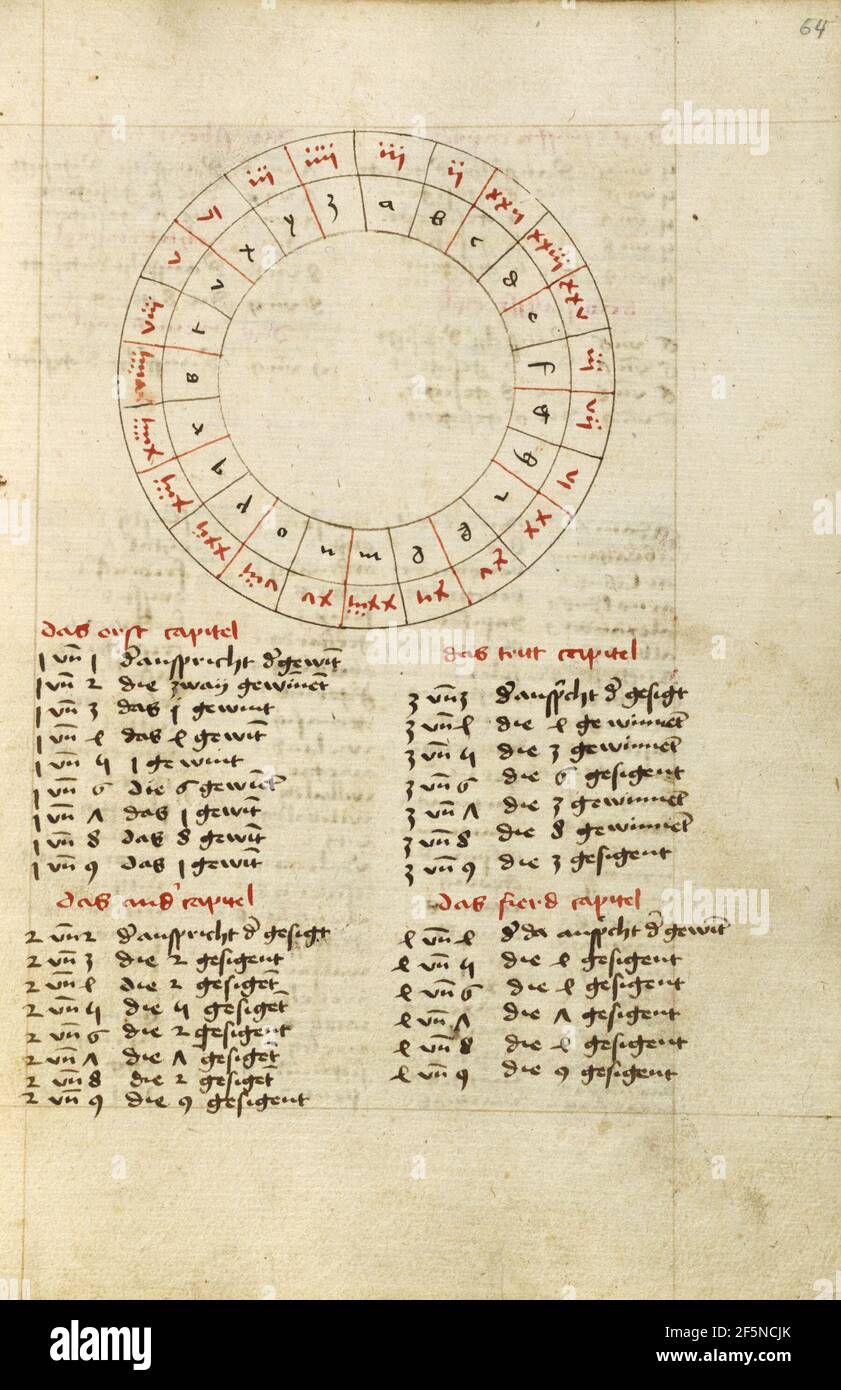 64
iij a
ij b
xxij c
xxiij d
xxv e
iij f
vij g
vi
xx
xv
xij
xxiij m
xv n
viij o
xxij p
xij q
viij
v
vj x
iij y
iiij z
das orst capitel
1 vn̄ 1 d' anspricht d' gewīt
1 vn̄ 2 die zway gewinēt
1 vn̄ 3 das 1 gewint
1 vn̄ 4 das 4 gewīt
1 vn̄ 5 1 gewint
1 vn̄ 6 die 6 gewīēt
1 vn̄ 7 das 1 gewīt
1 vn̄ 8 das 8 gewīt
1 vn̄ 9 das 1 gewīt
das and' capitel
2 vn̄ 2 d' anspricht d' gesigt
2 vn̄ 3 die 2 gesigent
2 vn̄ 4 die 2 gesigēt
2 vn̄ 5 die 5 gesigēt
2 vn̄ 6 die 2 gesigent
2 vn̄ 7 die 7 gesigēt
2 vn̄ 8 die 2 gesigēt
2 vn̄ 9 die 9 gesigent
das tritt capitel
3 vn̄ 3 d' anspͬcht d' gesigt
3 vn̄ 4 die 4 gewinnēt
3 vn̄ 5 die 3 gewinnēt
3 vn̄ 6 die 6 gesigent
3 vn̄ 7 die 3 gewinnēt
3 vn̄ 8 die 8 gewinnēt
3 vn̄ 9 die 3 gesigent
das fierd capitel
4 vn̄ 4 d' da anspͬcht d' gewīt
4 vn̄ 5 die 4 gesigent
4 vn̄ 6 die 4 gesigent
4 vn̄ 7 die 7 gesigent
4 vn̄ 8 die 4 gesigent
4 vn̄ 9 die 9 gesigent
alamy
Image ID: 2F5NCJK
www.alamy.com